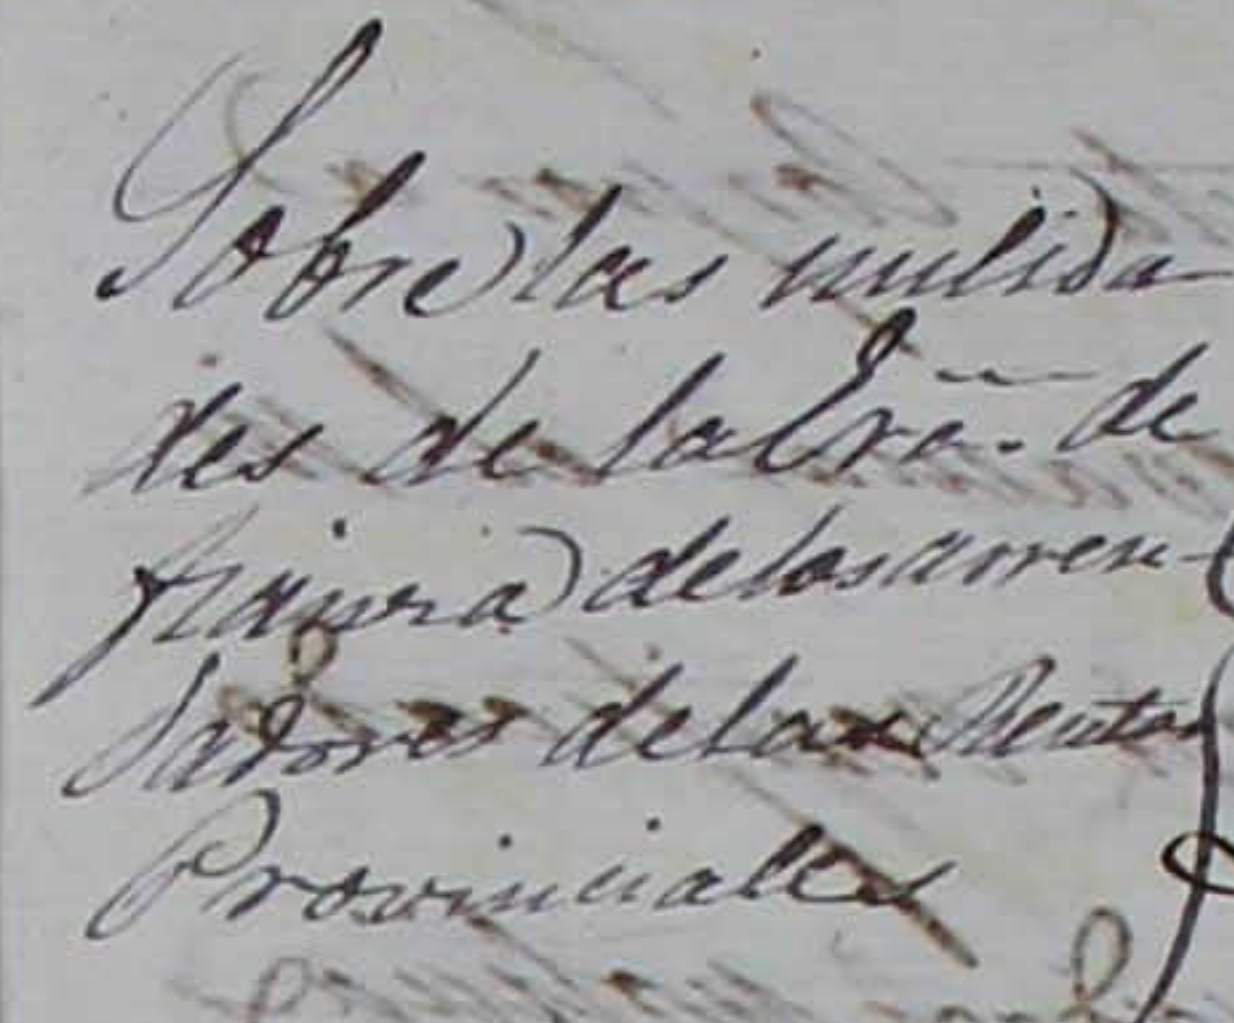 Sobre las nulida
des de la Esra. de
fianza de los arren-
dadores de las Rentas
Provinciales